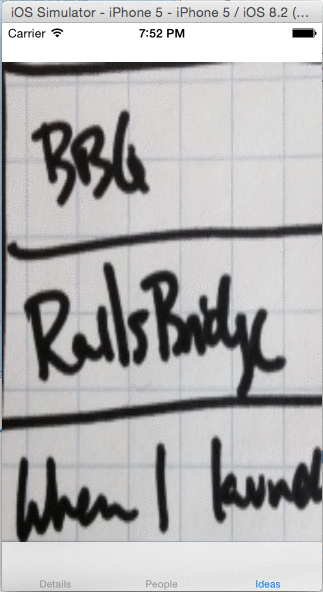 iOS Simulator - iPhone 5 - iPhone 5 / iOS 8.2 (...
Carrier 7:52 PM
BBQ
RailsBridge
When I launch
Details People Ideas